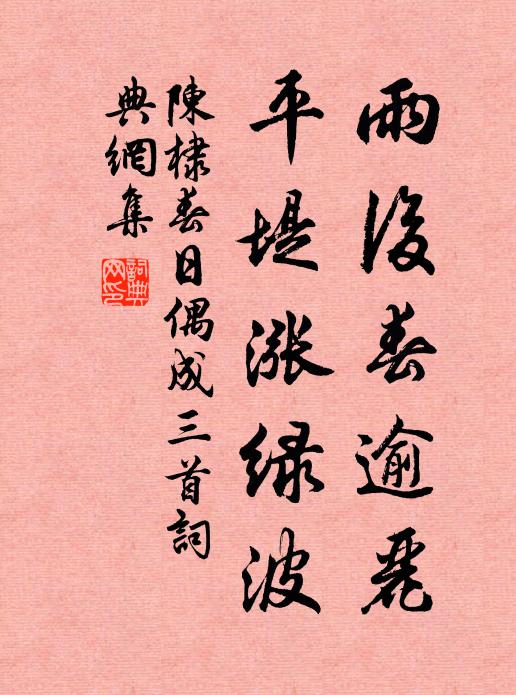 雨後春逾麗
平堤漲綠波
陳棣春日偶成三首詞
典網集
詞典網印